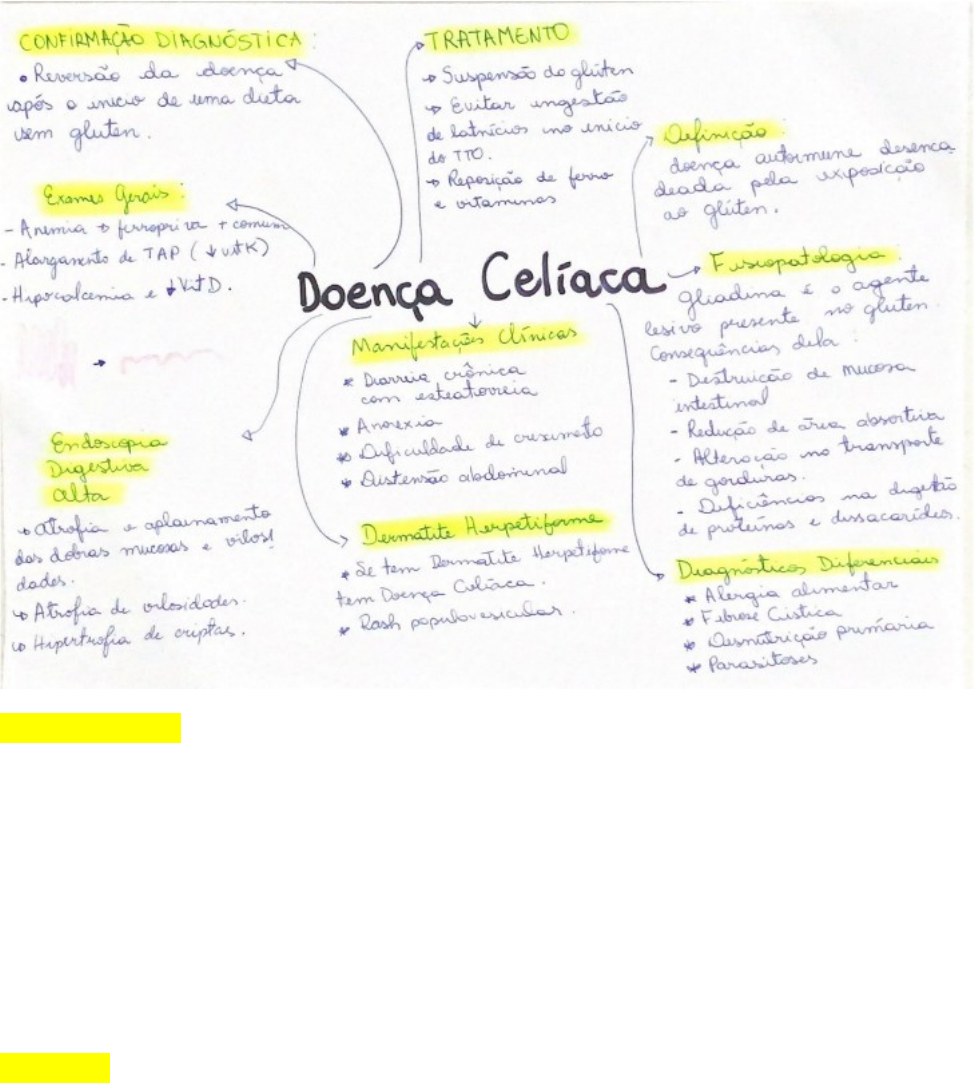 CONFIRMAÇÃO DIAGNÓSTICA :
• Reversão da doença
após o inicio de uma dieta
sem gluten.
TRATAMENTO
→ Suspensão do glúten
→ Evitar ingestão
de latnícios no início
do TTO.
→ Reposição de ferro
e vitaminas
Definição :
doença autoimune desenca
deada pela exposição
ao glúten.
Exames Gerais :
- Anemia → ferropriva + comum
- Alargamento de TAP (↓ vit K)
- Hipocalcemia e ↓ Vit D.
Doença Celíaca
Fisiopatologia :
gliadina é o agente
lesivo presente no gluten.
Consequências dela :
- Destruição de mucosa
intestinal
- Redução de área absortiva
- Alteração no transporte
de gorduras.
- Deficiências na digestão
de proteínas e dissacarídeos.
Manifestações Clínicas
* Diarreia crônica
com esteatorreia
* Anorexia
* Dificuldade de crescimeto
* Distensão abdominal
Endoscopia
Digestiva
alta
→ atrofia e aplainamento
das dobras mucosas e vilosi
dades.
→ Atrofia de vilosidades.
→ Hipertrofia de criptas.
Dermatite Herpetiforme
* Se tem Dermatite Herpetiforme
tem Doença Celíaca.
* Rash papulovesicular.
Diagnósticos Diferenciais
* Alergia alimentar
* Fibrose Cistica
* Desnutrição primaria
* Parasitoses